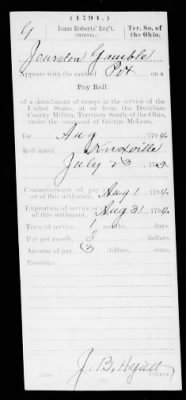 (1794.)
G Isaac Roberts' Reg't. Ter. So. of the Ohio.
Jourdon Gamble
Appears with the rank of Pvt on a
Pay Roll
of a detachment of troops in the service of the
United States, at or from the Davidson
County Militia, Territory South of the Ohio,
under the command of George McLean,
for Aug 1794
Roll dated Knoxville
July 23 179
Commencement of pay of this settlement, Aug 1 1794
Expiration of service or of this settlement, Aug 31 1794
Term of service, 1 months, days.
Pay per month, 3 dollars
Amount of pay, 3 dollars, cents.
Remarks:
J. B.